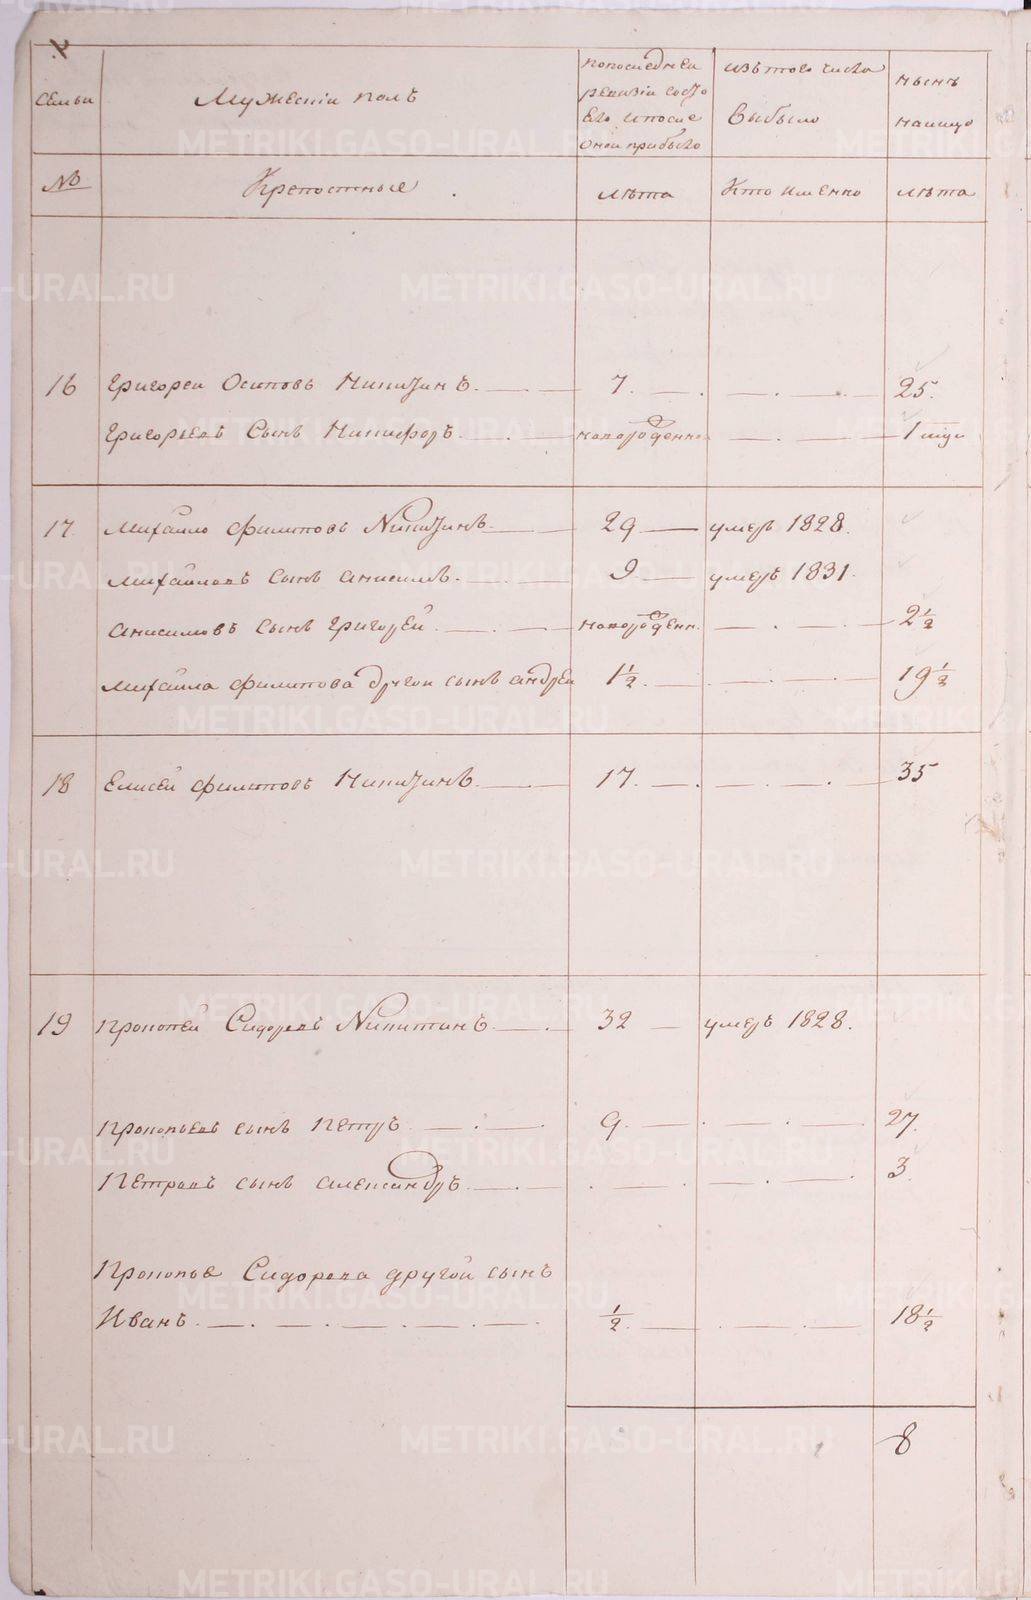 семьи
Мужескiи полъ
попоследнеи
ревизiи состо
Его ипосле
Онои прибыло
изътого числа
Выбыло
нынѣ
налицо
№
Крепостные
лѣта
Кто именно
лѣта
16 Григореи Осиповъ Никитинъ 7. 25.
Григорьевъ Сынъ Никифоръ новорожденнои 1 мцъ
17 Михайло филиповъ Никитинъ 29 умеръ 1828.
Михайловъ сынъ анисимъ. 9 умеръ 1831.
анисимовъ сынъ григорей. новорожденн. 2½
Михайла филипова другои сынъ андреи 1½. 19½
18 Елисей филиповъ Никитинъ 17. 35
19 Прокопей Сидоровъ Никитинъ 32 умеръ 1828.
Прокопьевъ сынъ Петръ 9. 27.
Петровъ сынъ александръ. 3.
Прокопья Сидорова другой сынъ
Иванъ. ½. 18½
8
METRIKI.GASO-URAL.RU